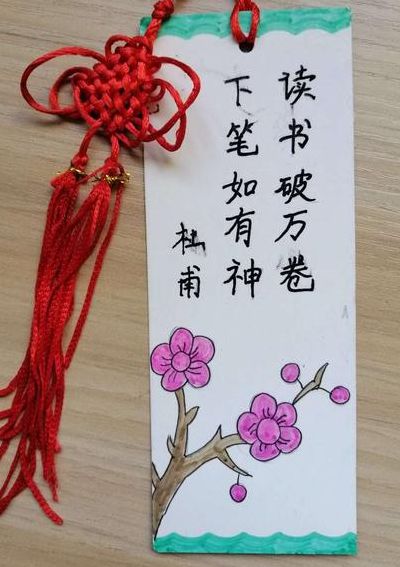 读书破万卷
下笔如有神
杜甫